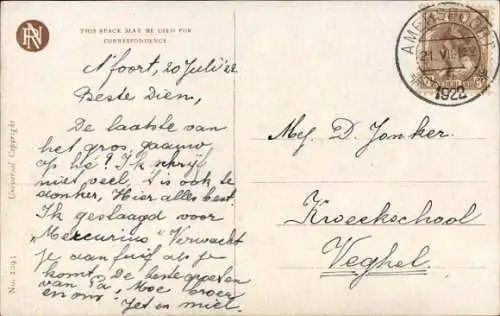 THIS SPACE MAY BE USED FOR
CORRESPONDENCE
A'foort, 20 Juli '22
Beste Dien,
De laatste van
het gros, gauw
op hè? Ik schrijf
niet veel. 't is ook te
donker, Hier alles best.
Ik geslaagd voor
"Mercurius" Verwacht
je aan fuif als je
komt. De beste groeten
van Pa, Moe, Broer
en ons Jet en miel.
AMERSFOORT
1922
Mej. D. Jonker.
Kroeckschool
Veghel.
Universal Copyright
No. 2093